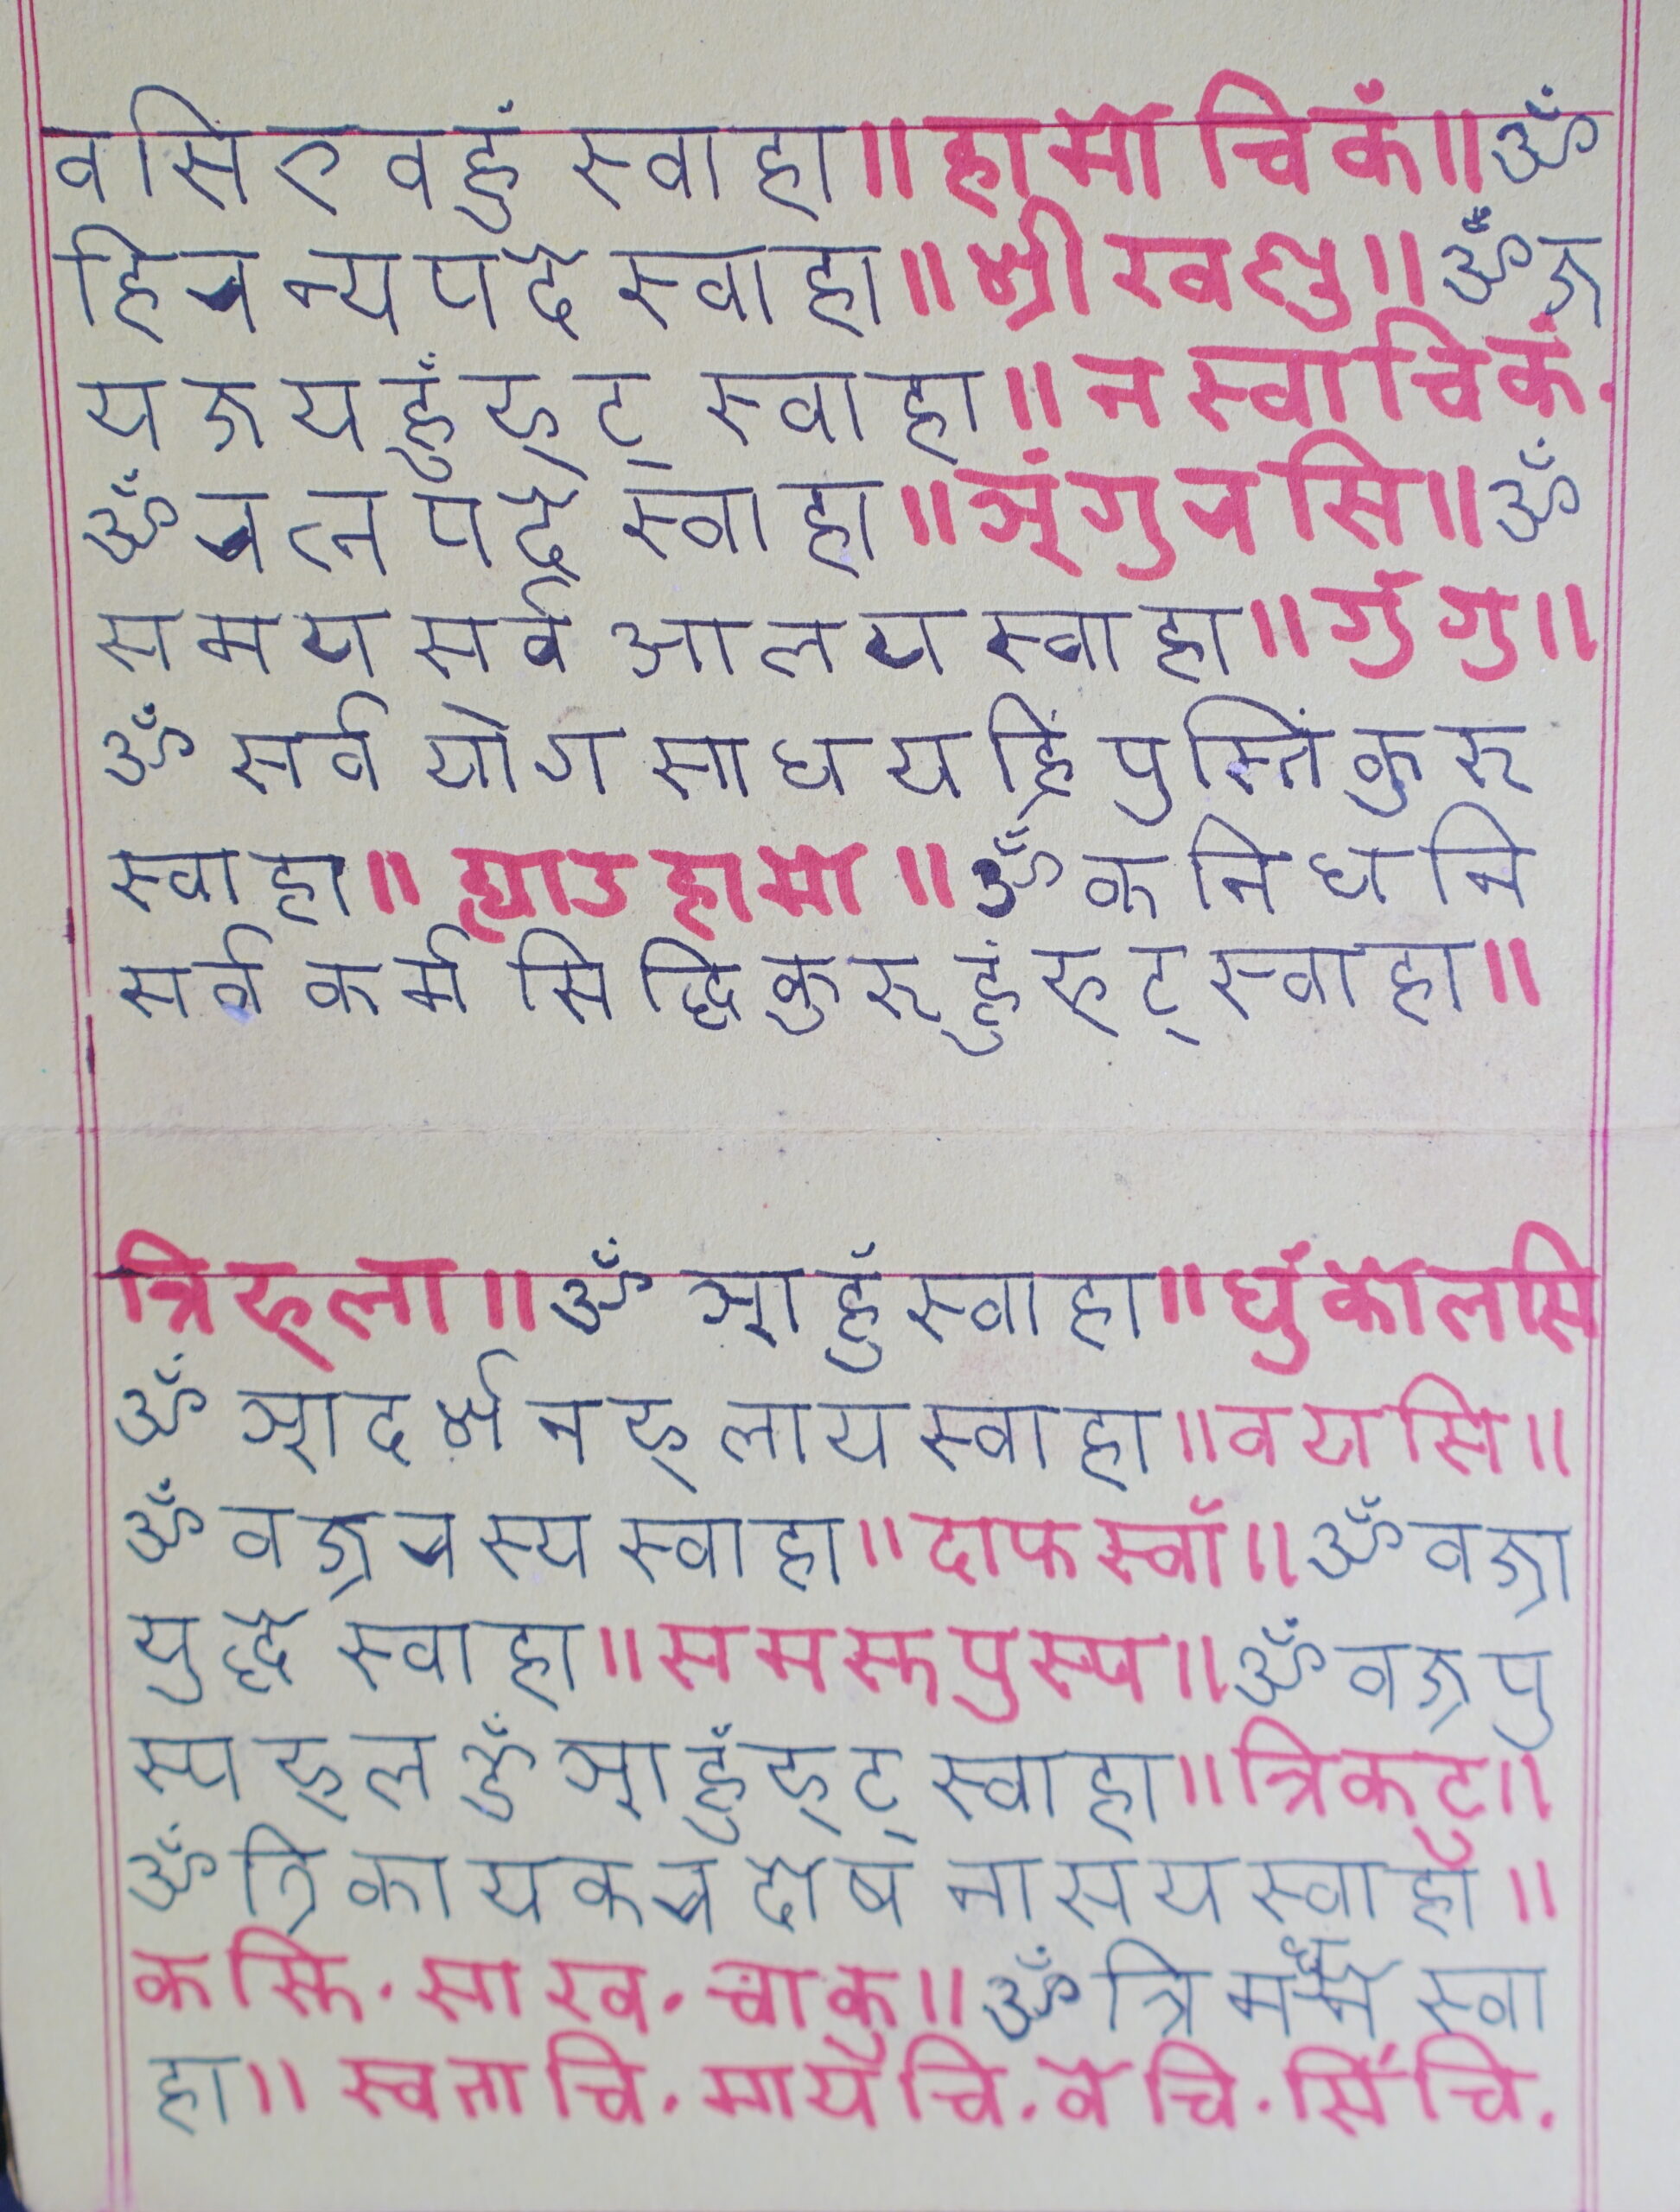 वसिए वहुं स्वाहा॥हामो चिकँ॥ॐ
हिरन्यपदे स्वाहा॥श्रीखण्ड॥ॐज्र
यज्रयहुँफट् स्वाहा॥नस्वाचिकं.
ॐरत्नपदे स्वाहा॥ञंगुरसि॥ॐ
समय सर्व आलय स्वाहा॥गुँगु॥
ॐ सर्व योग साधय ह्रिं पुस्तिं कुरु
स्वाहा॥ह्याउ हामो॥ॐ कनिधनि
सर्व कर्म सिद्धि कुरु हुं फट् स्वाहा॥
त्रिफला॥ॐ आहुँ स्वाहा॥धुँकालसि
ॐ आदर्शन फलाय स्वाहा॥वयसि॥
ॐ वज्ररस्य स्वाहा॥दाफस्वाँ॥ॐ वज्रा
युद्धे स्वाहा॥समस्त पुस्प॥ॐ वज्रपु
स्प फल ॐ आहुँ फट् स्वाहा॥त्रिकटु॥
ॐ त्रिकायकर दोष नासय स्वाहा॥
कस्ति.साखः.चाकु॥ॐ त्रिमर्धने स्वा
हा॥स्वताचि.मायेचि.वेचि.सिँचि.